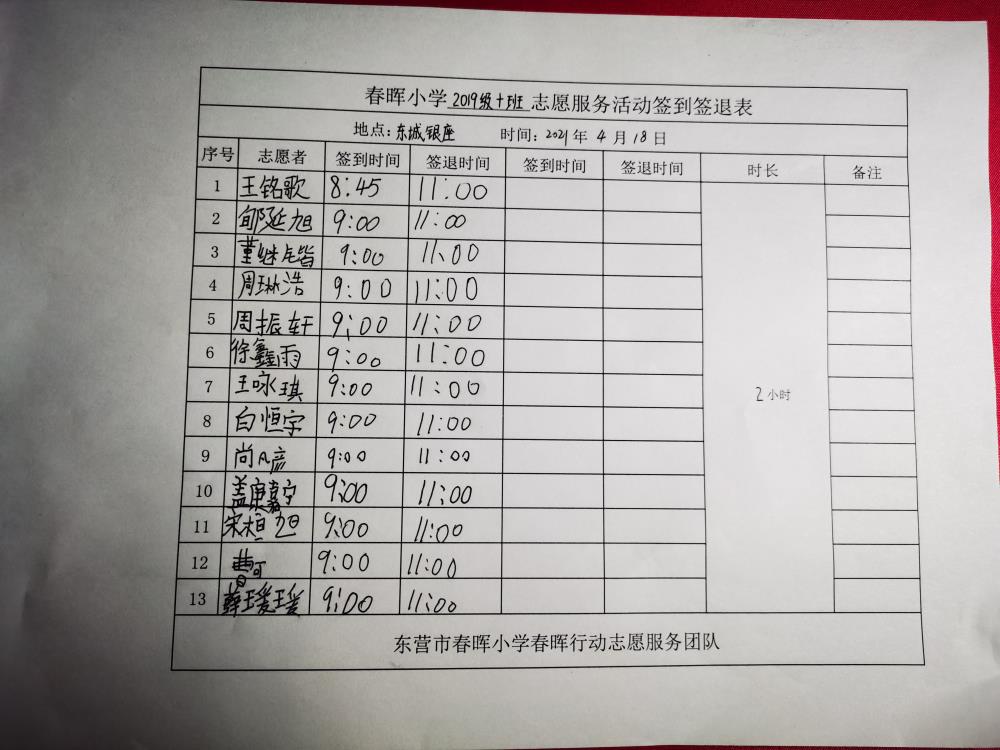 春晖小学2019级十班志愿服务活动签到签退表
地点:东城银座 时间:2021年4月18日
序号 志愿者 签到时间 签退时间 签到时间 签退时间 时长 备注
1 王铭歌 8:45 11:00
2 郇延旭 9:00 11:00
3 董继 9:00 11:00
4 周琳浩 9:00 11:00
5 周振轩 9:00 11:00
6 徐鑫雨 9:00 11:00
7 王咏琪 9:00 11:00
2小时
8 白恒宇 9:00 11:00
9 尚凡彦 9:00 11:00
10 盖康嘉宁 9:00 11:00
11 宋桓旭 9:00 11:00
12 曹可 9:00 11:00
13 薛瑷瑷 9:00 11:00
东营市春晖小学春晖行动志愿服务团队